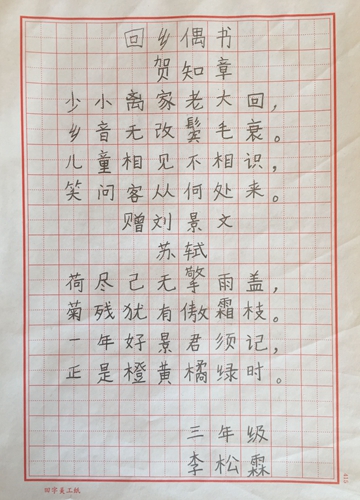 回乡偶书
贺知章
少小离家老大回，
乡音无改鬓毛衰。
儿童相见不相识，
笑问客从何处来。
赠刘景文
苏轼
荷尽已无擎雨盖，
菊残犹有傲霜枝。
一年好景君须记，
正是橙黄橘绿时。
三年级
李松霖